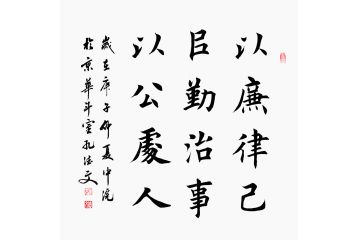 以廉律己
臣勤治事
以公處人
歲在庚子仲夏中浣
於京華斗室孔德文